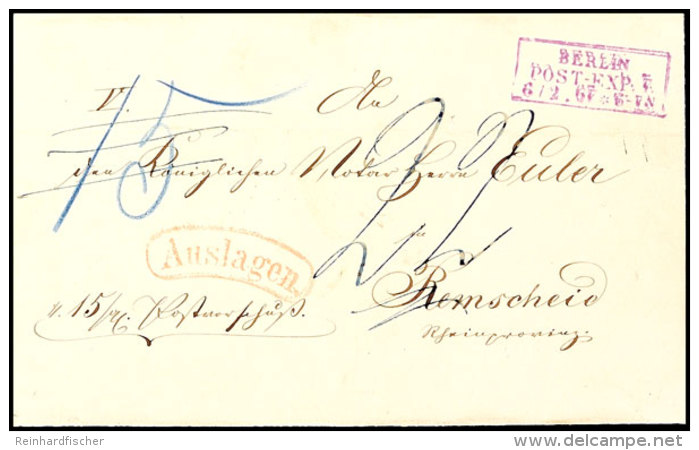 BERLIN
POST-EXP. 7.
6/2.67 * 6-7N
V.
An
15
den Königlichen Notar Herrn Euler
in
Auslagen.
Remscheid
15 Postvorschuß.
Rheinprovinz.
Reinhardfischer
delcampe.net